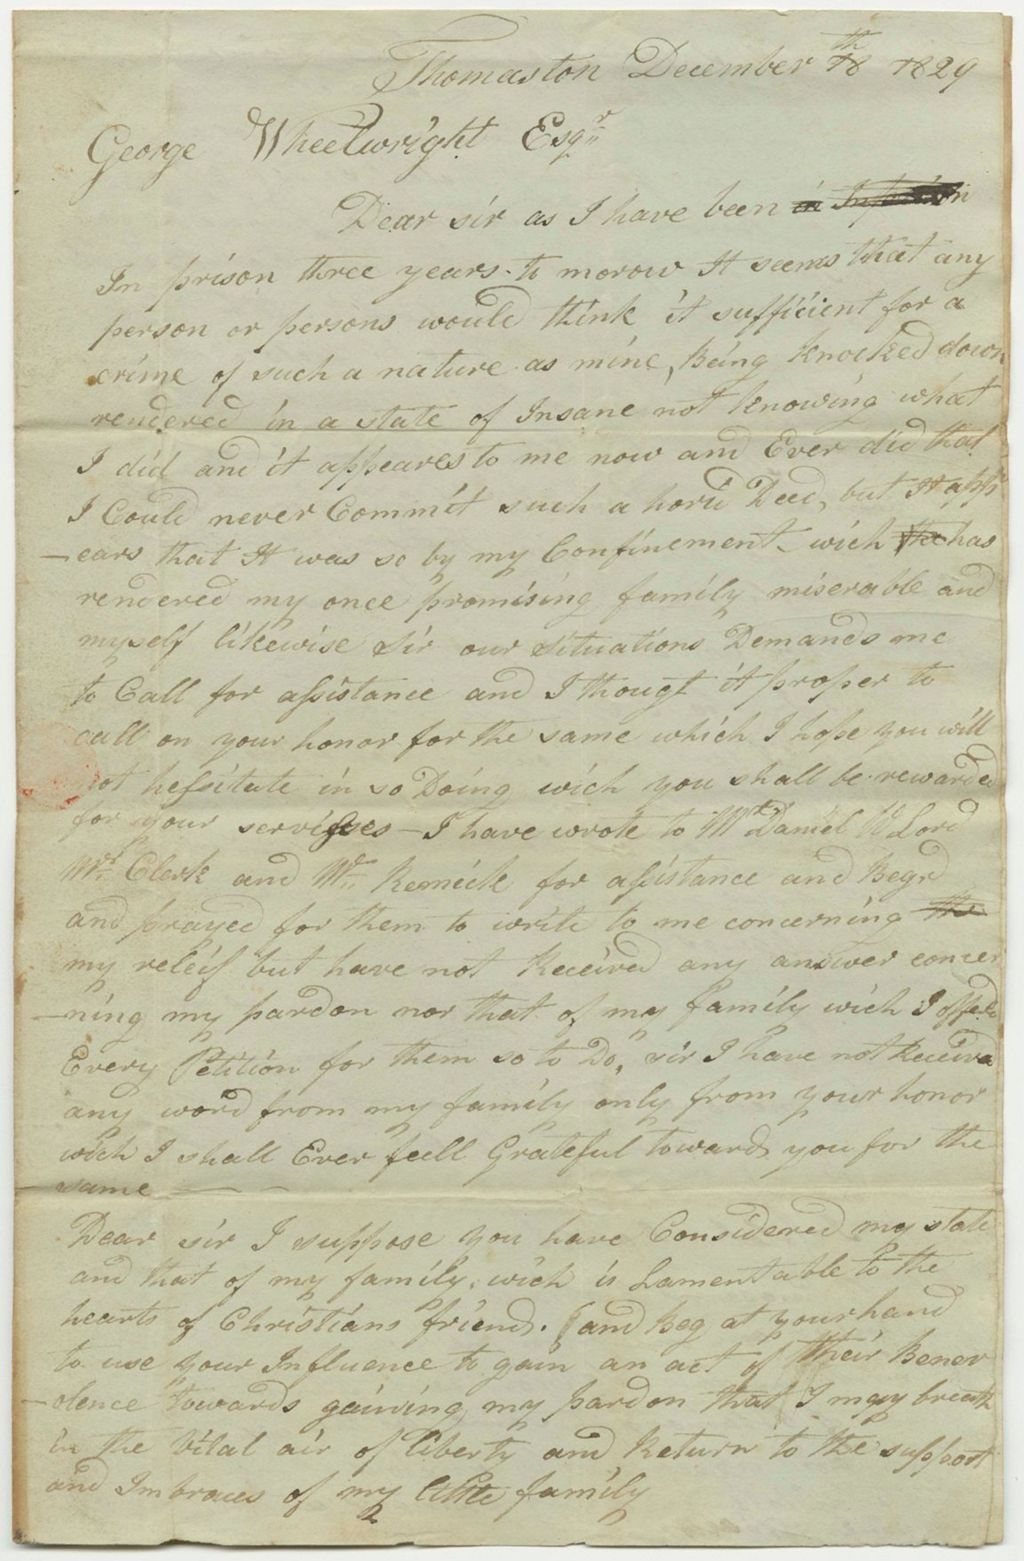 Thomaston December 18th 1829
George Wheelwright Esqr
Dear sir as I have been in
In prison three years to morow It seems that any
person or persons would think it sufficient for a
crime of such a nature as mine, Being knocked down
rendered in a state of Insane not knowing what
I did and it appeares to me now and Ever did that
I Could never Commit such a horid Deed, but It app
-ears that It was so by my Confinement wich the has
rendered my once promising family miserable and
myself likewise sir our situations Demands me
to Call for assistance and I thougt it proper to
call on your honor for the same which I hope you will
not hessitate in so Doing wich you shall be rewarded
for your servises - I have wrote to Mr Daniel W Lord
Mr Clerk and Mr Remick for assistance and Begd
and prayed for them to write to me concerning the
my releif but have not Received any answer concer
-ning my pardon nor that of my family wich I offerd
Every Petition for them so to Do, sir I have not Receivd
any word from my family only from your honor
wich I shall Ever feell Grateful towards you for the
same
Dear sir I suppose you have Considered my state
and that of my family, wich is Lamentable to the
hearts of Christians friends. and Beg at your hand
to use your Influence to gain an act of their Benev
-olence towards gaining my pardon that I may breath
in the Vital air of liberty and Return to the support
and Imbraces of my little family
2